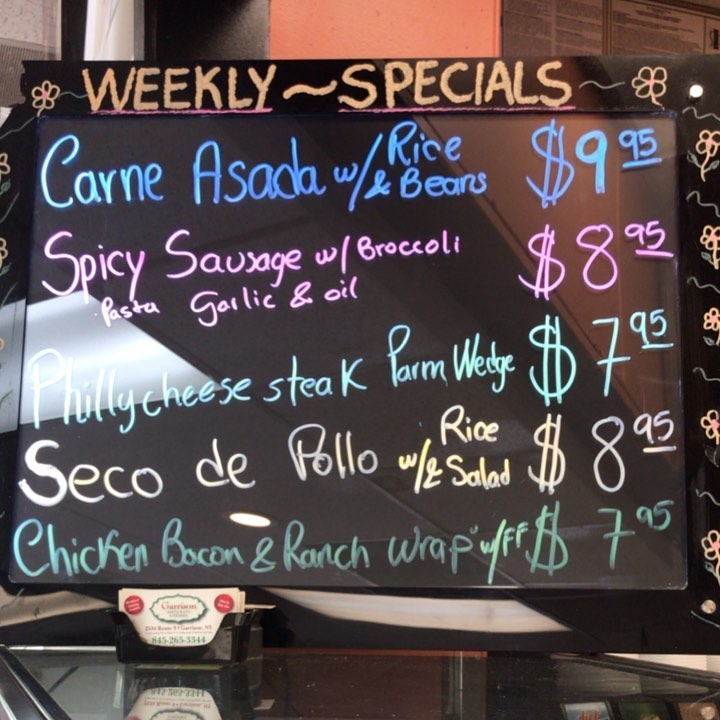 WEEKLY ~ SPECIALS
Carne Asada w/ Rice & Beans $9 95
Spicy Sausage w/ Broccoli $8 95
Pasta Garlic & oil
Phillycheese steak Parm Wedge $7 95
Seco de Pollo w/ Rice & Salad $8 95
Chicken Bacon & Ranch Wrap w/FF $7 95
Garrison
2034 Route 9 • Garrison, NY
845-265-3344